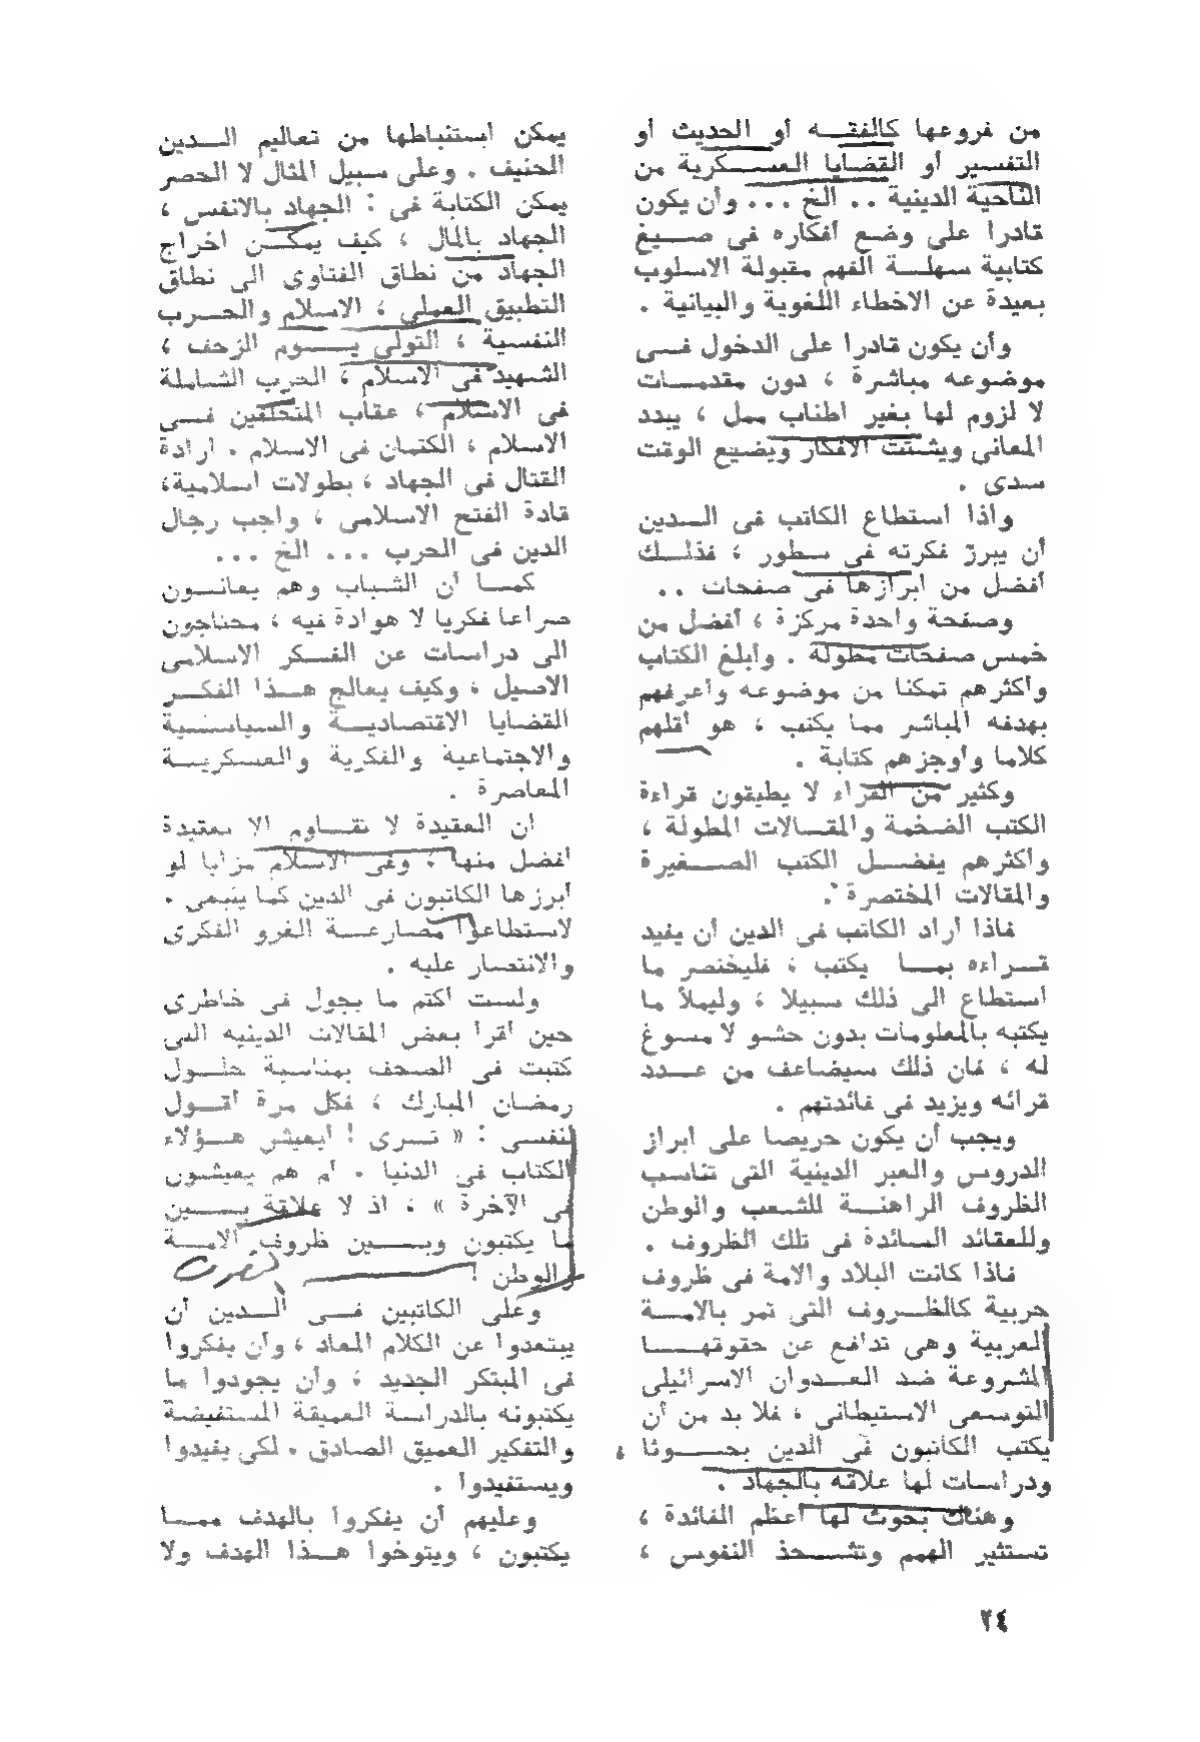 من فروعها كالفقه أو الحديث أو
التفسير أو القضايا العسكرية من
الناحية الدينية .. الخ ... وأن يكون
قادرا على وضع أفكاره فى صيغ
كتابية سهلة الفهم مقبولة الاسلوب
بعيدة عن الاخطاء اللغوية والبيانية .
وأن يكون قادرا على الدخول فى
موضوعه مباشرة ، دون مقدمات
لا لزوم لها بغير اطناب ممل ، يبدد
المعانى ويشتت الافكار ويضيع الوقت
سدى .
واذا استطاع الكاتب فى الدين
أن يبرز فكرته فى سطور ، فذلك
أفضل من ابرازها فى صفحات ..
وصفحة واحدة مركزة ، أفضل من
خمس صفحات مطولة . وأبلغ الكتاب
وأكثرهم تمكنا من موضوعه وأعرفهم
بهدفه المباشر مما يكتب ، هو أقلهم
كلاما وأوجزهم كتابة .
وكثير من القراء لا يطيقون قراءة
الكتب الضخمة والمقالات المطولة ،
وأكثرهم يفضل الكتب الصغيرة
والمقالات المختصرة .
فاذا أراد الكاتب فى الدين أن يفيد
قراءه بما يكتب ، فليختصر ما
استطاع الى ذلك سبيلا ، وليملأ ما
يكتبه بالمعلومات بدون حشو لا مسوغ
له ، فان ذلك سيضاعف من عدد
قرائه ويزيد فى فائدتهم .
ويجب أن يكون حريصا على ابراز
الدروس والعبر الدينية التى تناسب
الظروف الراهنة للشعب والوطن
وللعقائد السائدة فى تلك الظروف .
فاذا كانت البلاد والامة فى ظروف
حربية كالظروف التى تمر بالامة
العربية وهى تدافع عن حقوقها
المشروعة ضد العدوان الاسرائيلى
التوسعى الاستيطانى ، فلا بد من أن
يكتب الكاتبون فى الدين بحوثا ،
ودراسات لها علاقة بالجهاد .
وهناك بحوث لها أعظم الفائدة ،
تستثير الهمم وتشحذ النفوس ،
يمكن استنباطها من تعاليم الدين
الحنيف . وعلى سبيل المثال لا الحصر
يمكن الكتابة فى : الجهاد بالانفس ،
الجهاد بالمال ، كيف يمكن اخراج
الجهاد من نطاق الفتاوى الى نطاق
التطبيق العملى ، الاسلام والحرب
النفسية ، التولى يوم الزحف ،
الشهيد فى الاسلام ، الحرب الشاملة
فى الاسلام ، عقاب المتخلفين فى
الاسلام ، الكتمان فى الاسلام . ارادة
القتال فى الجهاد ، بطولات اسلامية،
قادة الفتح الاسلامى ، واجب رجال
الدين فى الحرب ... الخ ...
كما أن الشباب وهم يعانون
صراعا فكريا لا هوادة فيه ، محتاجون
الى دراسات عن الفكر الاسلامى
الاصيل ، وكيف يعالج هذا الفكر
القضايا الاقتصادية والسياسية
والاجتماعية والفكرية والعسكرية
المعاصرة .
ان العقيدة لا تقاوم الا بعقيدة
أفضل منها ، وفى الاسلام مزايا لو
أبرزها الكاتبون فى الدين كما ينبغى .
لاستطاعوا مصارعة الغزو الفكرى
والانتصار عليه .
ولست أكتم ما يجول فى خاطرى
حين أقرأ بعض المقالات الدينيه التى
كتبت فى الصحف بمناسبة حلول
رمضان المبارك ، فكل مرة أقول
لنفسى : « ترى ! أيعيش هؤلاء
الكتاب فى الدنيا . أم هم يعيشون
فى الآخرة » ، اذ لا علاقة بين
ما يكتبون وبين ظروف الامة
والوطن !
وعلى الكاتبين فى الدين أن
يبتعدوا عن الكلام المعاد ، وأن يفكروا
فى المبتكر الجديد ، وأن يجودوا ما
يكتبونه بالدراسة العميقة المستفيضة
والتفكير العميق الصادق . لكى يفيدوا
ويستفيدوا .
وعليهم أن يفكروا بالهدف مما
يكتبون ، ويتوخوا هذا الهدف ولا
٢٤